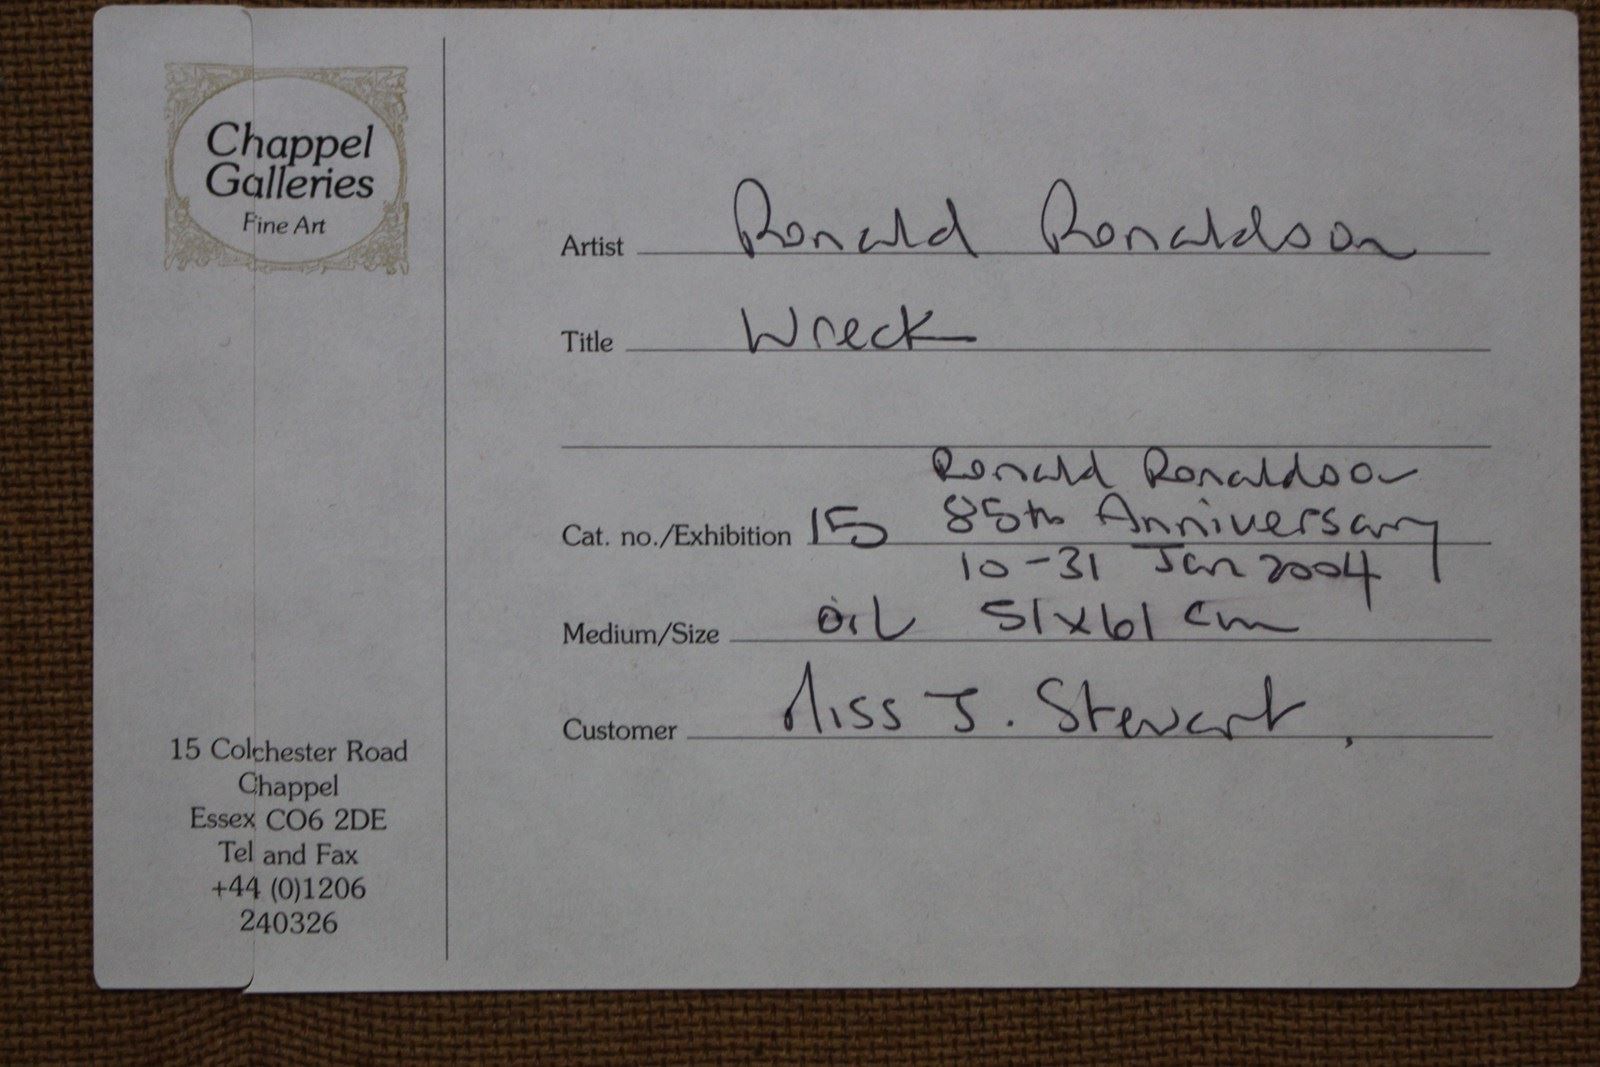 Chappel
Galleries
Fine Art
Artist Ronald Ronaldson
Title Wreck
Ronald Ronaldson
Cat. no./Exhibition 15 85th Anniversary
10-31 Jan 2004
Medium/Size oil 51x61 cm
Customer Miss J. Stewart,
15 Colchester Road
Chappel
Essex CO6 2DE
Tel and Fax
+44 (0)1206
240326